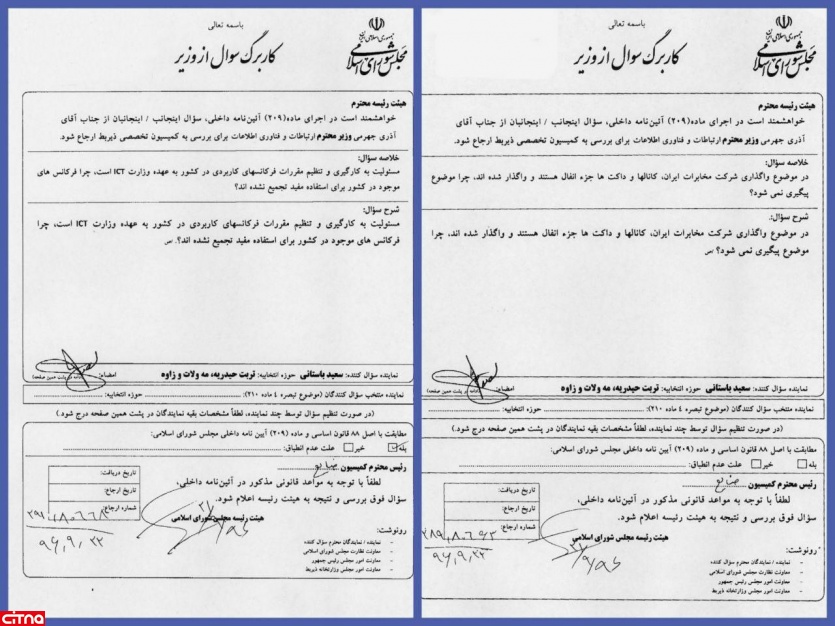 باسمه تعالی
جمهوری اسلامی ایران
مجلس شورای اسلامی
کاربرگ سوال از وزیر
هیئت رئیسه محترم
خواهشمند است در اجرای ماده(۲۰۹) آئین‌نامه داخلی، سؤال اینجانب / اینجانبان از جناب آقای
آذری جهرمی وزیر محترم ارتباطات و فناوری اطلاعات برای بررسی به کمیسیون تخصصی ذیربط ارجاع شود.
خلاصه سؤال:
در موضوع واگذاری شرکت مخابرات ایران، کانالها و داکت ها جزء انفال هستند و واگذار شده اند، چرا موضوع
پیگیری نمی شود؟
شرح سؤال:
در موضوع واگذاری شرکت مخابرات ایران، کانالها و داکت ها جزء انفال هستند و واگذار شده اند، چرا
موضوع پیگیری نمی شود؟
نماینده سؤال کننده: سعید باستانی حوزه انتخابیه: تربت حیدریه، مه ولات و زاوه امضاء:
نماینده منتخب سؤال کنندگان (موضوع تبصره ۴ ماده ۲۱۰): حوزه انتخابیه:
(در صورت تنظیم سؤال توسط چند نماینده، لطفاً مشخصات بقیه نمایندگان در پشت همین صفحه درج شود.)
مطابقت با اصل ۸۸ قانون اساسی و ماده (۲۰۹) آیین نامه داخلی مجلس شورای اسلامی:
بله خیر علت عدم انطباق:
رئیس محترم کمیسیون صنایع
لطفاً با توجه به مواعد قانونی مذکور در آئین‌نامه داخلی،
سؤال فوق بررسی و نتیجه به هیئت رئیسه اعلام شود.
هیئت رئیسه مجلس شورای اسلامی
تاریخ دریافت:
تاریخ ارجاع:
شماره ارجاع:
۹۶,۹,۲۲
رونوشت:
- نماینده / نمایندگان محترم سؤال کننده
- معاونت نظارت مجلس شورای اسلامی
- معاونت امور مجلس رئیس جمهور
- معاونت امور مجلس وزارتخانه ذیربط
باسمه تعالی
جمهوری اسلامی ایران
مجلس شورای اسلامی
کاربرگ سوال از وزیر
هیئت رئیسه محترم
خواهشمند است در اجرای ماده(۲۰۹) آئین‌نامه داخلی، سؤال اینجانب / اینجانبان از جناب آقای
آذری جهرمی وزیر محترم ارتباطات و فناوری اطلاعات برای بررسی به کمیسیون تخصصی ذیربط ارجاع شود.
خلاصه سؤال:
مسئولیت به کارگیری و تنظیم مقررات فرکانسهای کاربردی در کشور به عهده وزارت ICT است، چرا فرکانس های
موجود در کشور برای استفاده مفید تجمیع نشده اند؟
شرح سؤال:
مسئولیت به کارگیری و تنظیم مقررات فرکانسهای کاربردی در کشور به عهده وزارت ICT است، چرا
فرکانس های موجود در کشور برای استفاده مفید تجمیع نشده اند؟.
نماینده سؤال کننده: سعید باستانی حوزه انتخابیه: تربت حیدریه، مه ولات و زاوه امضاء:
نماینده منتخب سؤال کنندگان (موضوع تبصره ۴ ماده ۲۱۰): حوزه انتخابیه:
(در صورت تنظیم سؤال توسط چند نماینده، لطفاً مشخصات بقیه نمایندگان در پشت همین صفحه درج شود.)
مطابقت با اصل ۸۸ قانون اساسی و ماده (۲۰۹) آیین نامه داخلی مجلس شورای اسلامی:
بله خیر علت عدم انطباق:
رئیس محترم کمیسیون صنایع
لطفاً با توجه به مواعد قانونی مذکور در آئین‌نامه داخلی،
سؤال فوق بررسی و نتیجه به هیئت رئیسه اعلام شود.
هیئت رئیسه مجلس شورای اسلامی
تاریخ دریافت:
تاریخ ارجاع:
شماره ارجاع:
۹۶,۹,۲۲
رونوشت:
- نماینده / نمایندگان محترم سؤال کننده
- معاونت نظارت مجلس شورای اسلامی
- معاونت امور مجلس رئیس جمهور
- معاونت امور مجلس وزارتخانه ذیربط
citna